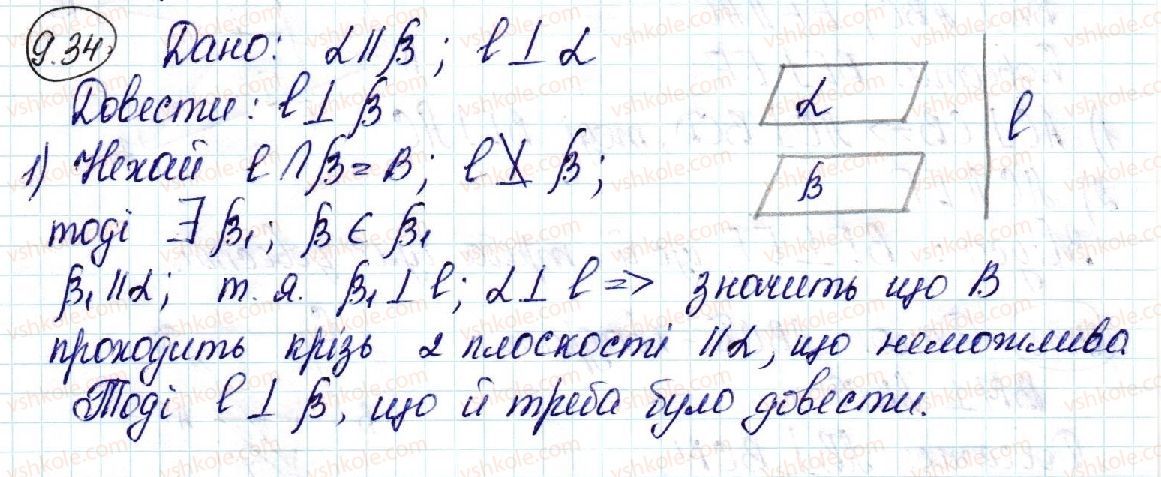 9.34 Дано: α∥β; l⊥α
Довести: l⊥β
1) Нехай l∩β=B; l⊥̸β;
тоді ∃ β₁; β∈β₁
β₁∥α; т.я. β₁⊥l; α⊥l => значить що B
проходить крізь 2 плоскості ∥α, що неможлива
Тоді l⊥β, що й треба було довести.
α
β
l